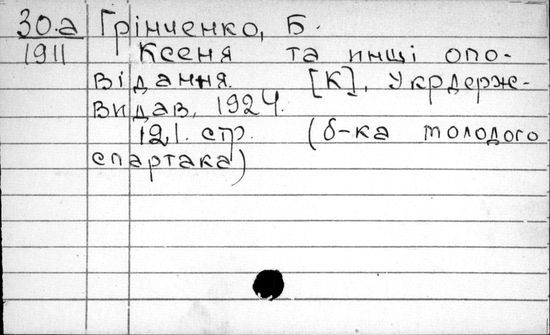 30.а Грінченко, Б.
1911 Ксеня та инщі опо-
відання. [К], Укрдерж-
видав, 1924.
121. стр. (б-ка молодого
спартака)